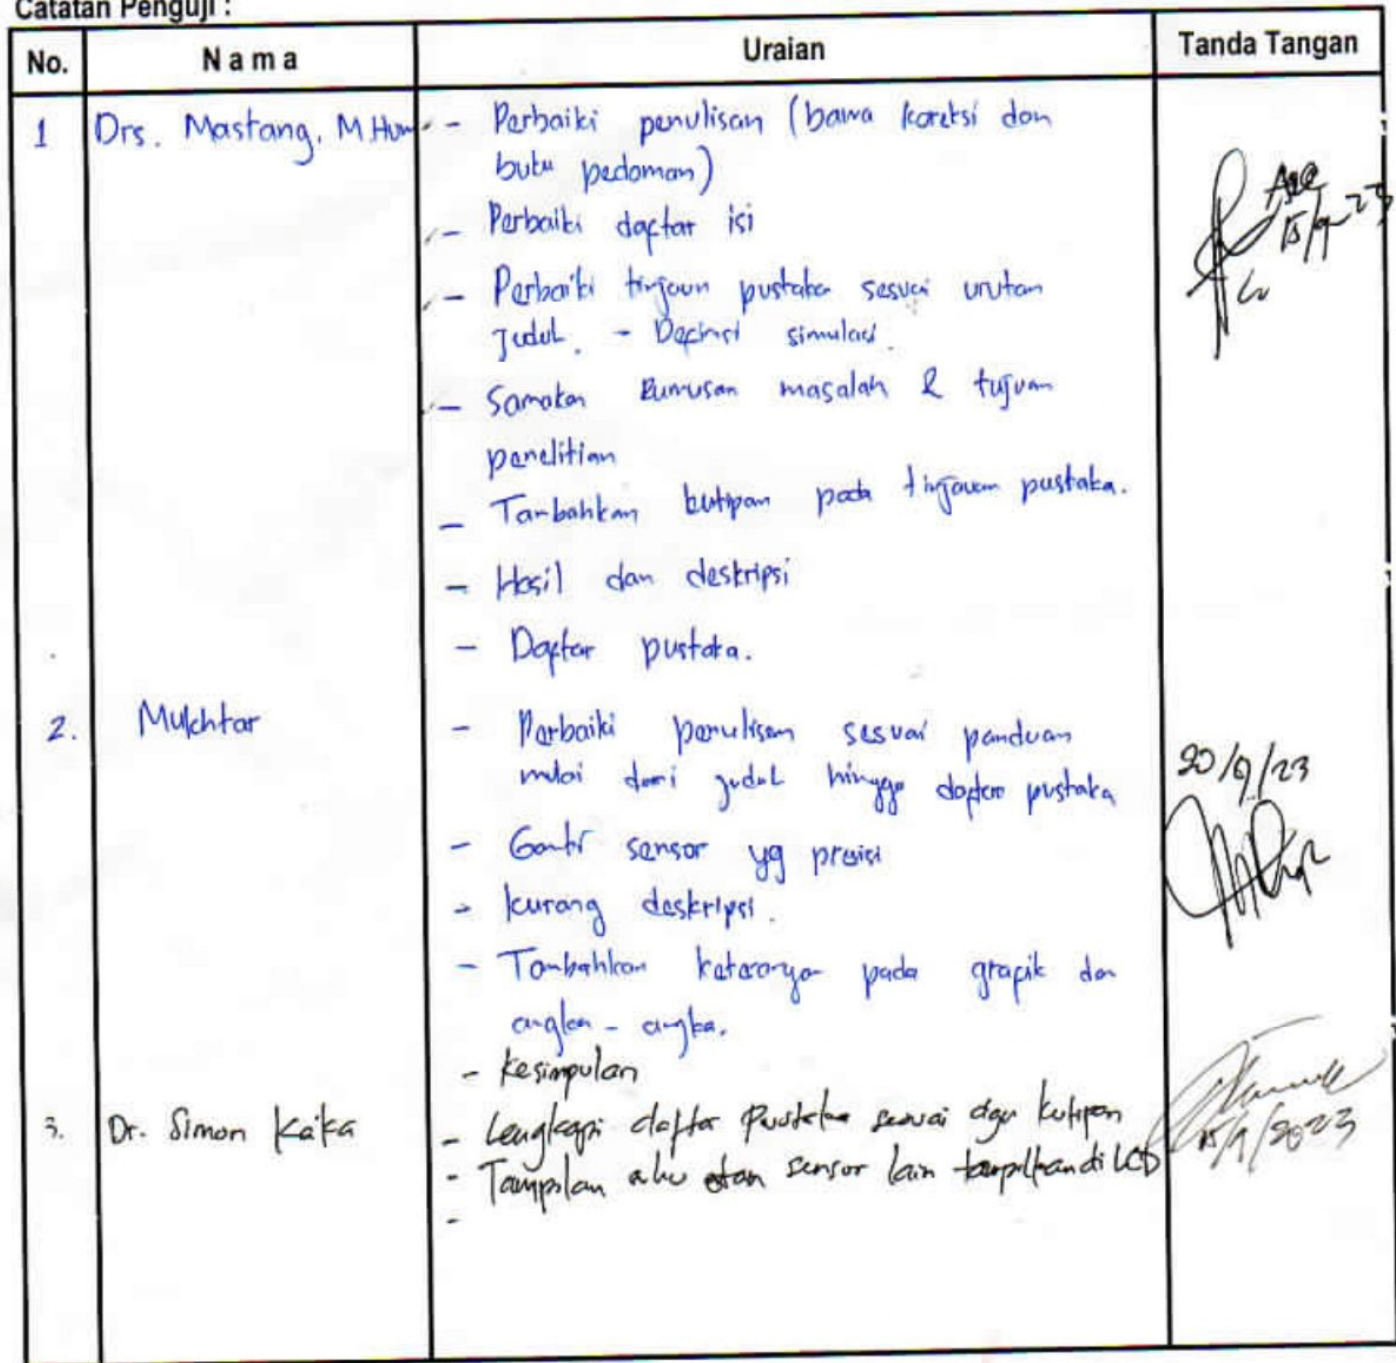 Catatan Penguji :
No. Nama Uraian Tanda Tangan
1 Drs. Mastang, M.Hum - Perbaiki penulisan (bawa koreksi dan
buku pedoman)
- Perbaiki daftar isi
- Perbaiki tinjauan pustaka sesuai urutan
judul. - Definisi simulasi.
- Samakan Rumusan masalah & tujuan
penelitian
- Tambahkan kutipan pada tinjauan pustaka.
- Hasil dan deskripsi
- Daftar pustaka.
Acc
15/9-23
2. Mukhtar - Perbaiki penulisan sesuai panduan
mulai dari judul hingga daftar pustaka
- Ganti sensor yg presisi
- kurang deskripsi.
- Tambahkan pada grafik dan
angka - angka.
20/9/23
- Kesimpulan
3. Dr. Simon Kaka - Lengkapi daftar Pustaka sesuai dgn kutipan
- Tampilan sensor lain tampilkan di LCD
-
15/9/2023